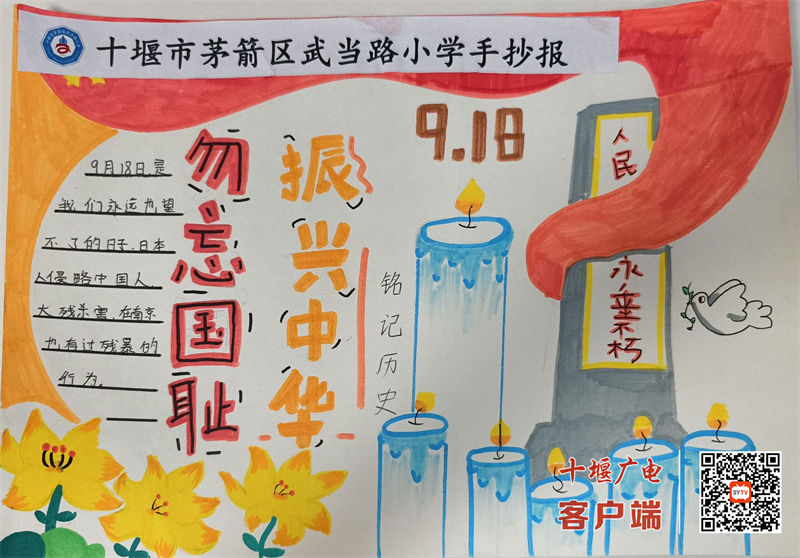 十堰市茅箭区武当路小学手抄报
9.18
勿忘国耻
振兴中华
铭记历史
9月18日是
我们永远也望
不了的日子,日本
人侵略中国人,
大残杀害,在南京
也有过残暴的
行为。
人民
永垂不朽
十堰广电
客户端
SYTV